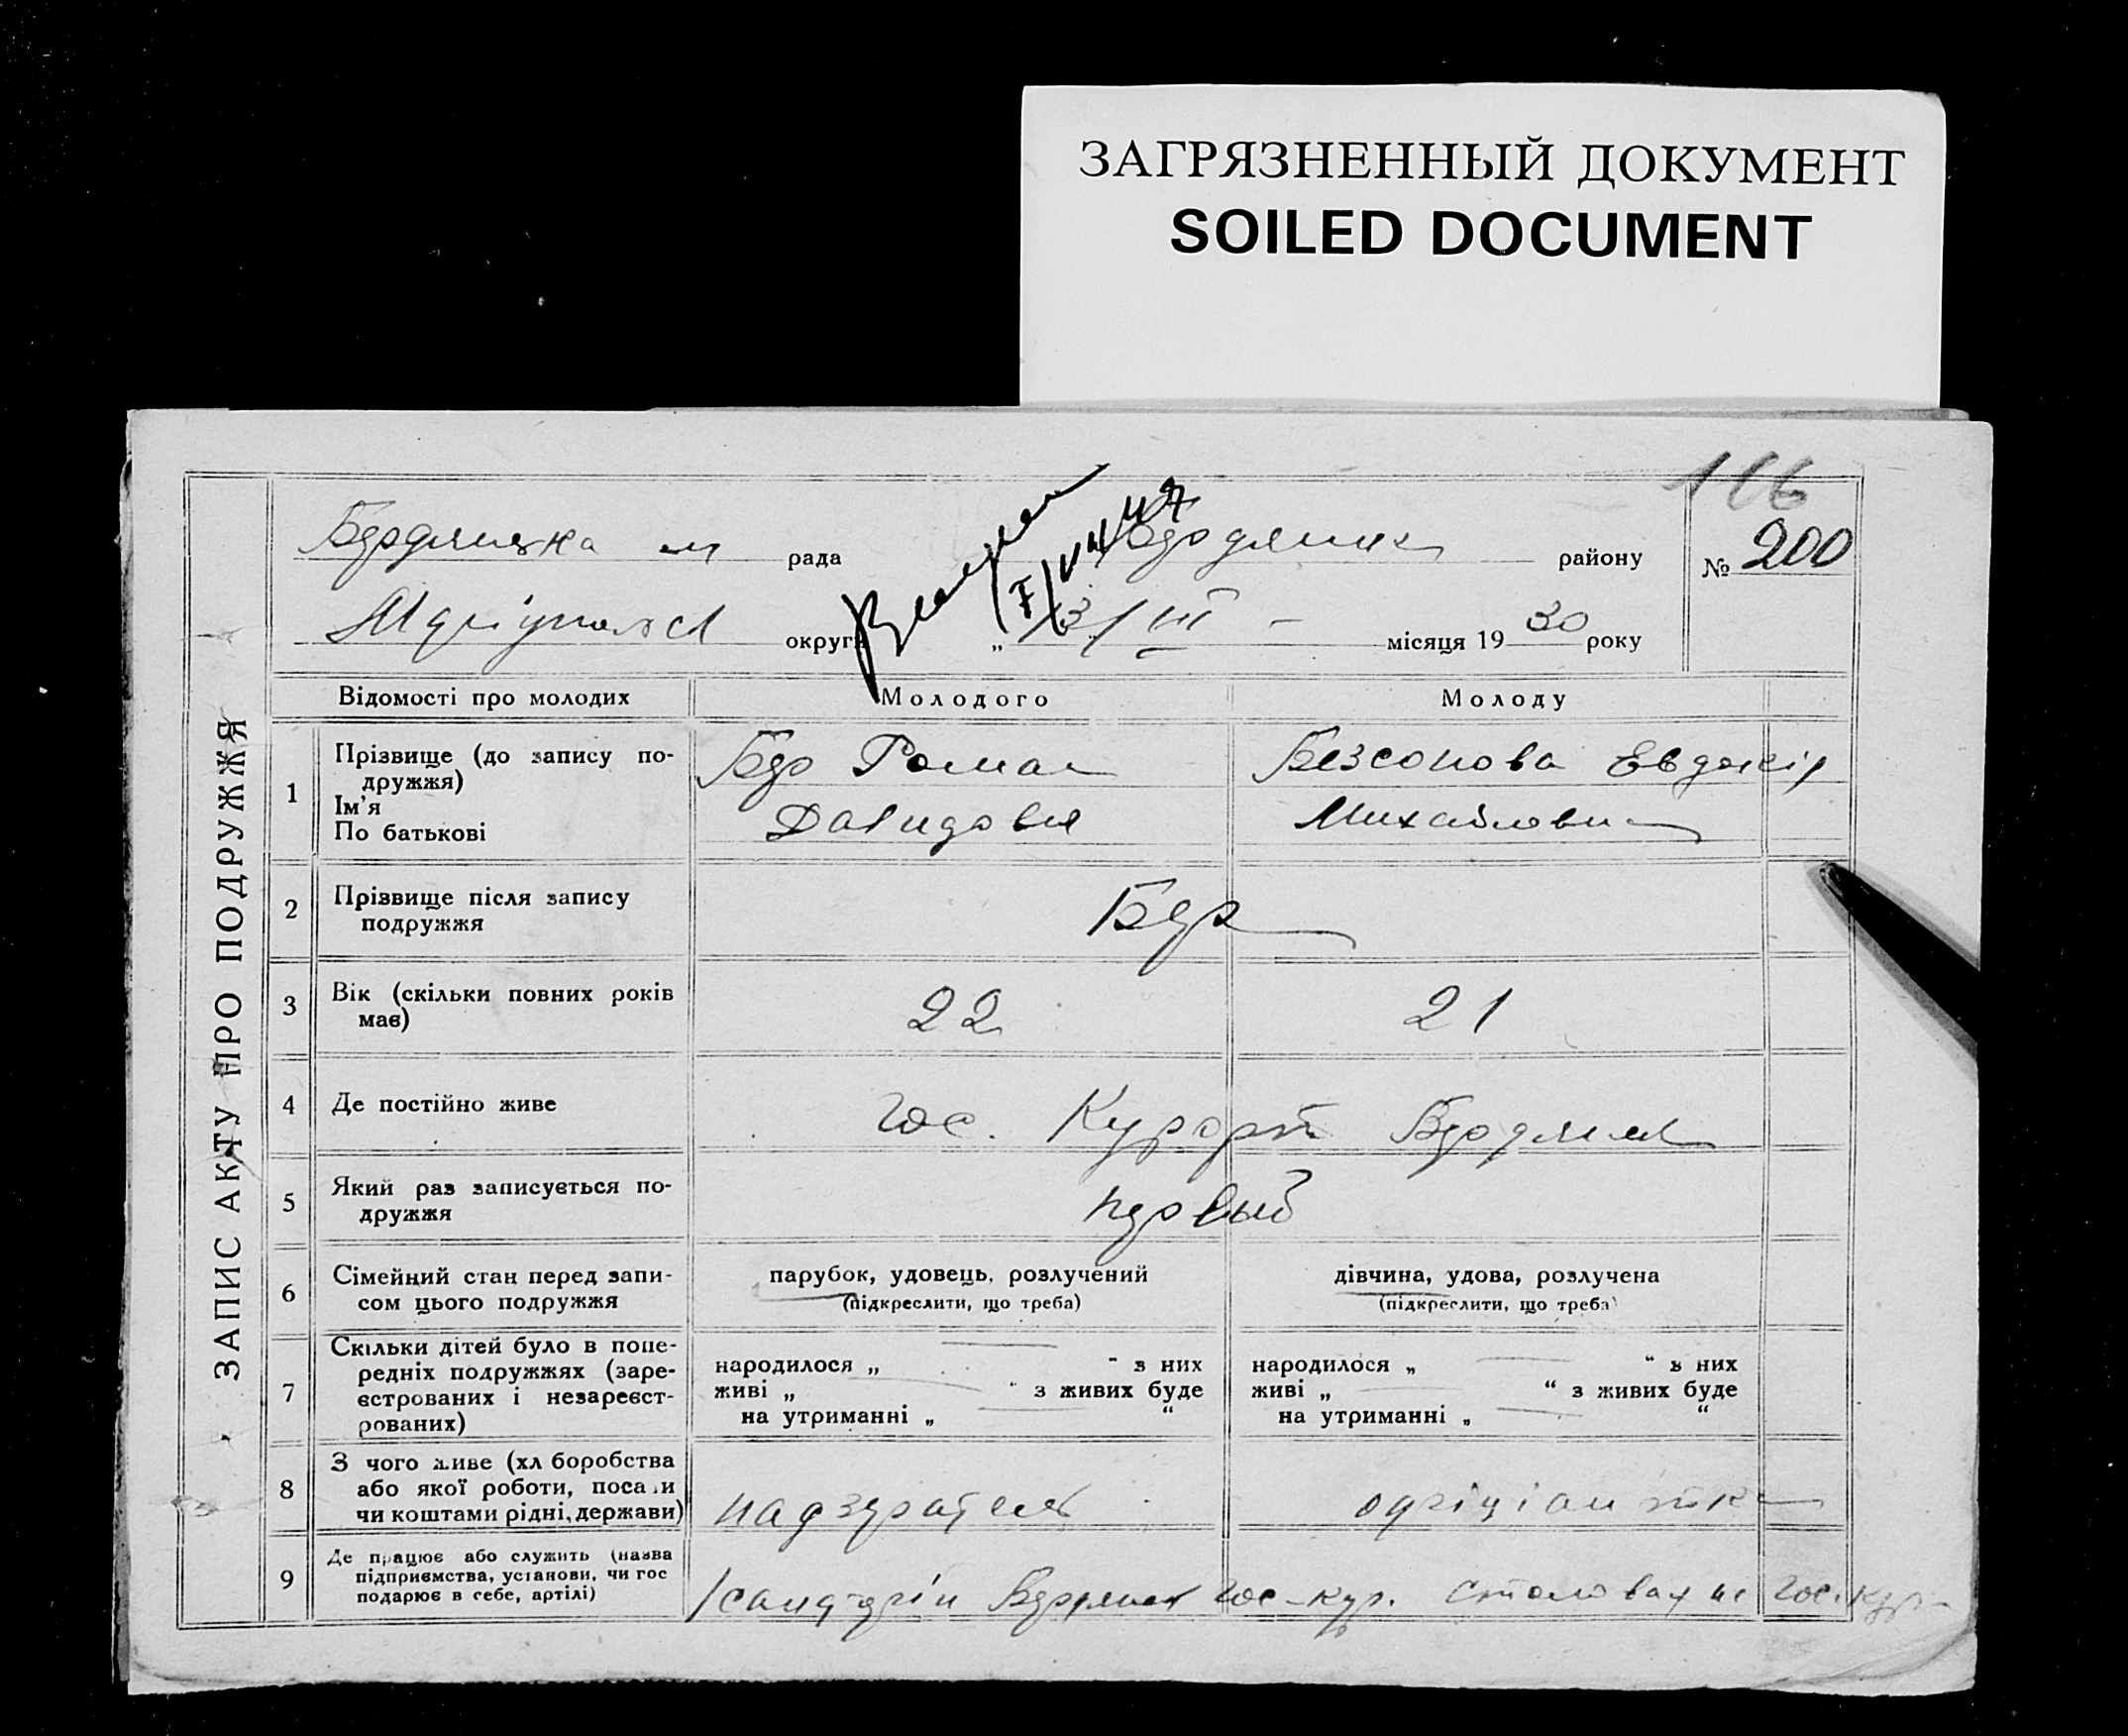 ЗАГРЯЗНЕННЫЙ ДОКУМЕНТ
SOILED DOCUMENT
116
Бердянська м рада району № 200
округи „ 13/III – місяця 1930 року
ЗАПИС АКТУ ПРО ПОДРУЖЖЯ
Відомості про молодих Молодого Молоду
1 Прізвище (до запису подружжя) Ім'я По батькові
Роман Безсонова Евдокія
Давидович Михайловна
2 Прізвище після запису подружжя
3 Вік (скільки повних років має) 22 21
4 Де постійно живе Гос. Курорт Бердянск
5 Який раз записується подружжя первый
6 Сімейний стан перед записом цього подружжя
парубок, удовець, розлучений дівчина, удова, розлучена
(підкреслити, що треба) (підкреслити, що треба)
7 Скільки дітей було в попередніх подружжях (зареєстрованих і незареєстрованих)
народилося „ “ з них народилося „ “ з них
живі „ “ з живих буде живі „ “ з живих буде
на утриманні „ “ на утриманні „ “
8 З чого живе (хліборобства або якої роботи, посади чи коштами рідні, держави) надзератель офіціантка
9 Де працює або служить (назва підприємства, установи, чи господарює в себе, артілі)
Гос-кур. Столовая Гос. Кур